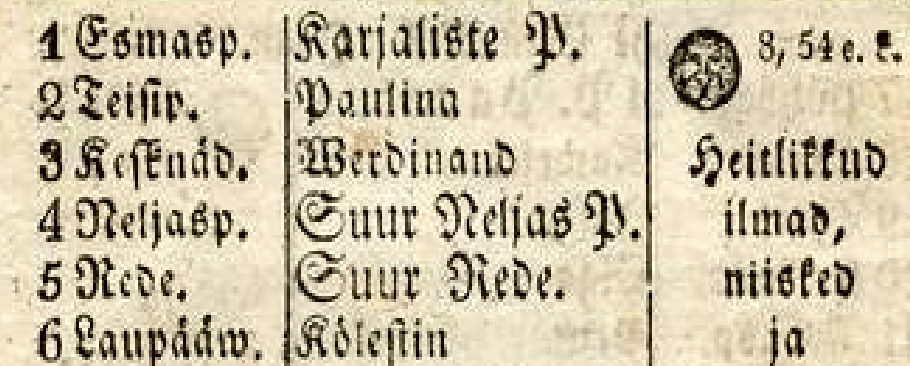 1 Esmasp. Karjaliste P. 8, 54 e. k.
2 Teisip. Paulina
3 Kesknäd. Werdinand Heitlikkud
4 Neljasp. Suur Neljas P. ilmad,
5 Rede. Suur Rede. niisked
6 Laupääw. Kölestin ja